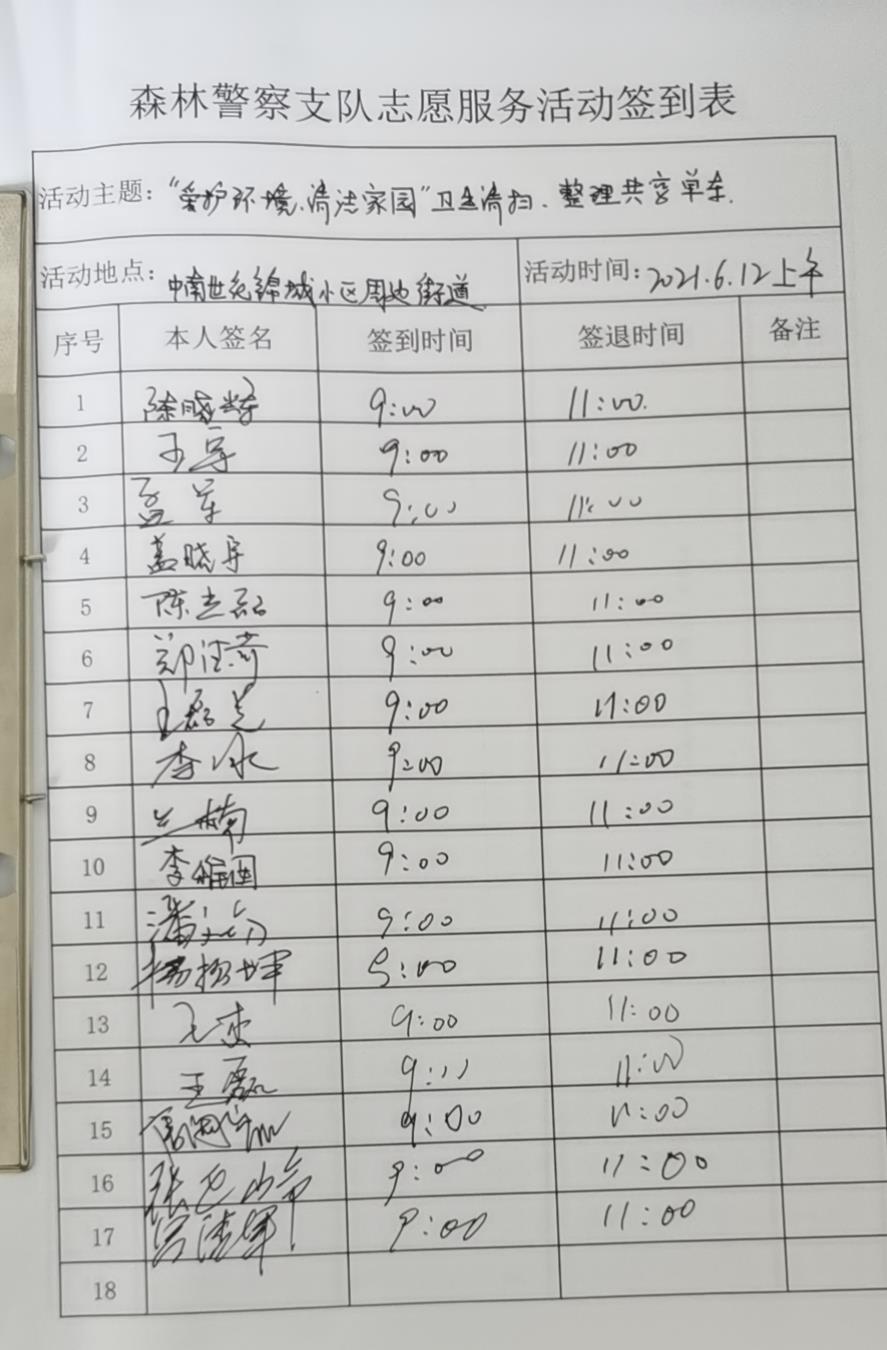 森林警察支队志愿服务活动签到表
活动主题："爱护环境、清洁家园"卫生清扫、整理共享单车.
活动地点：中南世纪锦城小区周边街道 活动时间：2021.6.12上午
序号 本人签名 签到时间 签退时间 备注
1 陈晓 9:00 11:00.
2 9:00 11:00
3 孟军 9:00 11:00
4 晓 9:00 11:00
5 陈志磊 9:00 11:00
6 郑 9:00 11:00
7 王磊 9:00 11:00
8 李冰 9:00 11:00
9 兰楠 9:00 11:00
10 李 9:00 11:00
11 潘 9:00 11:00
12 杨 9:00 11:00
13 9:00 11:00
14 王磊 9:00 11:00
15 周 9:00 11:00
16 张 9:00 11:00
17 9:00 11:00
18